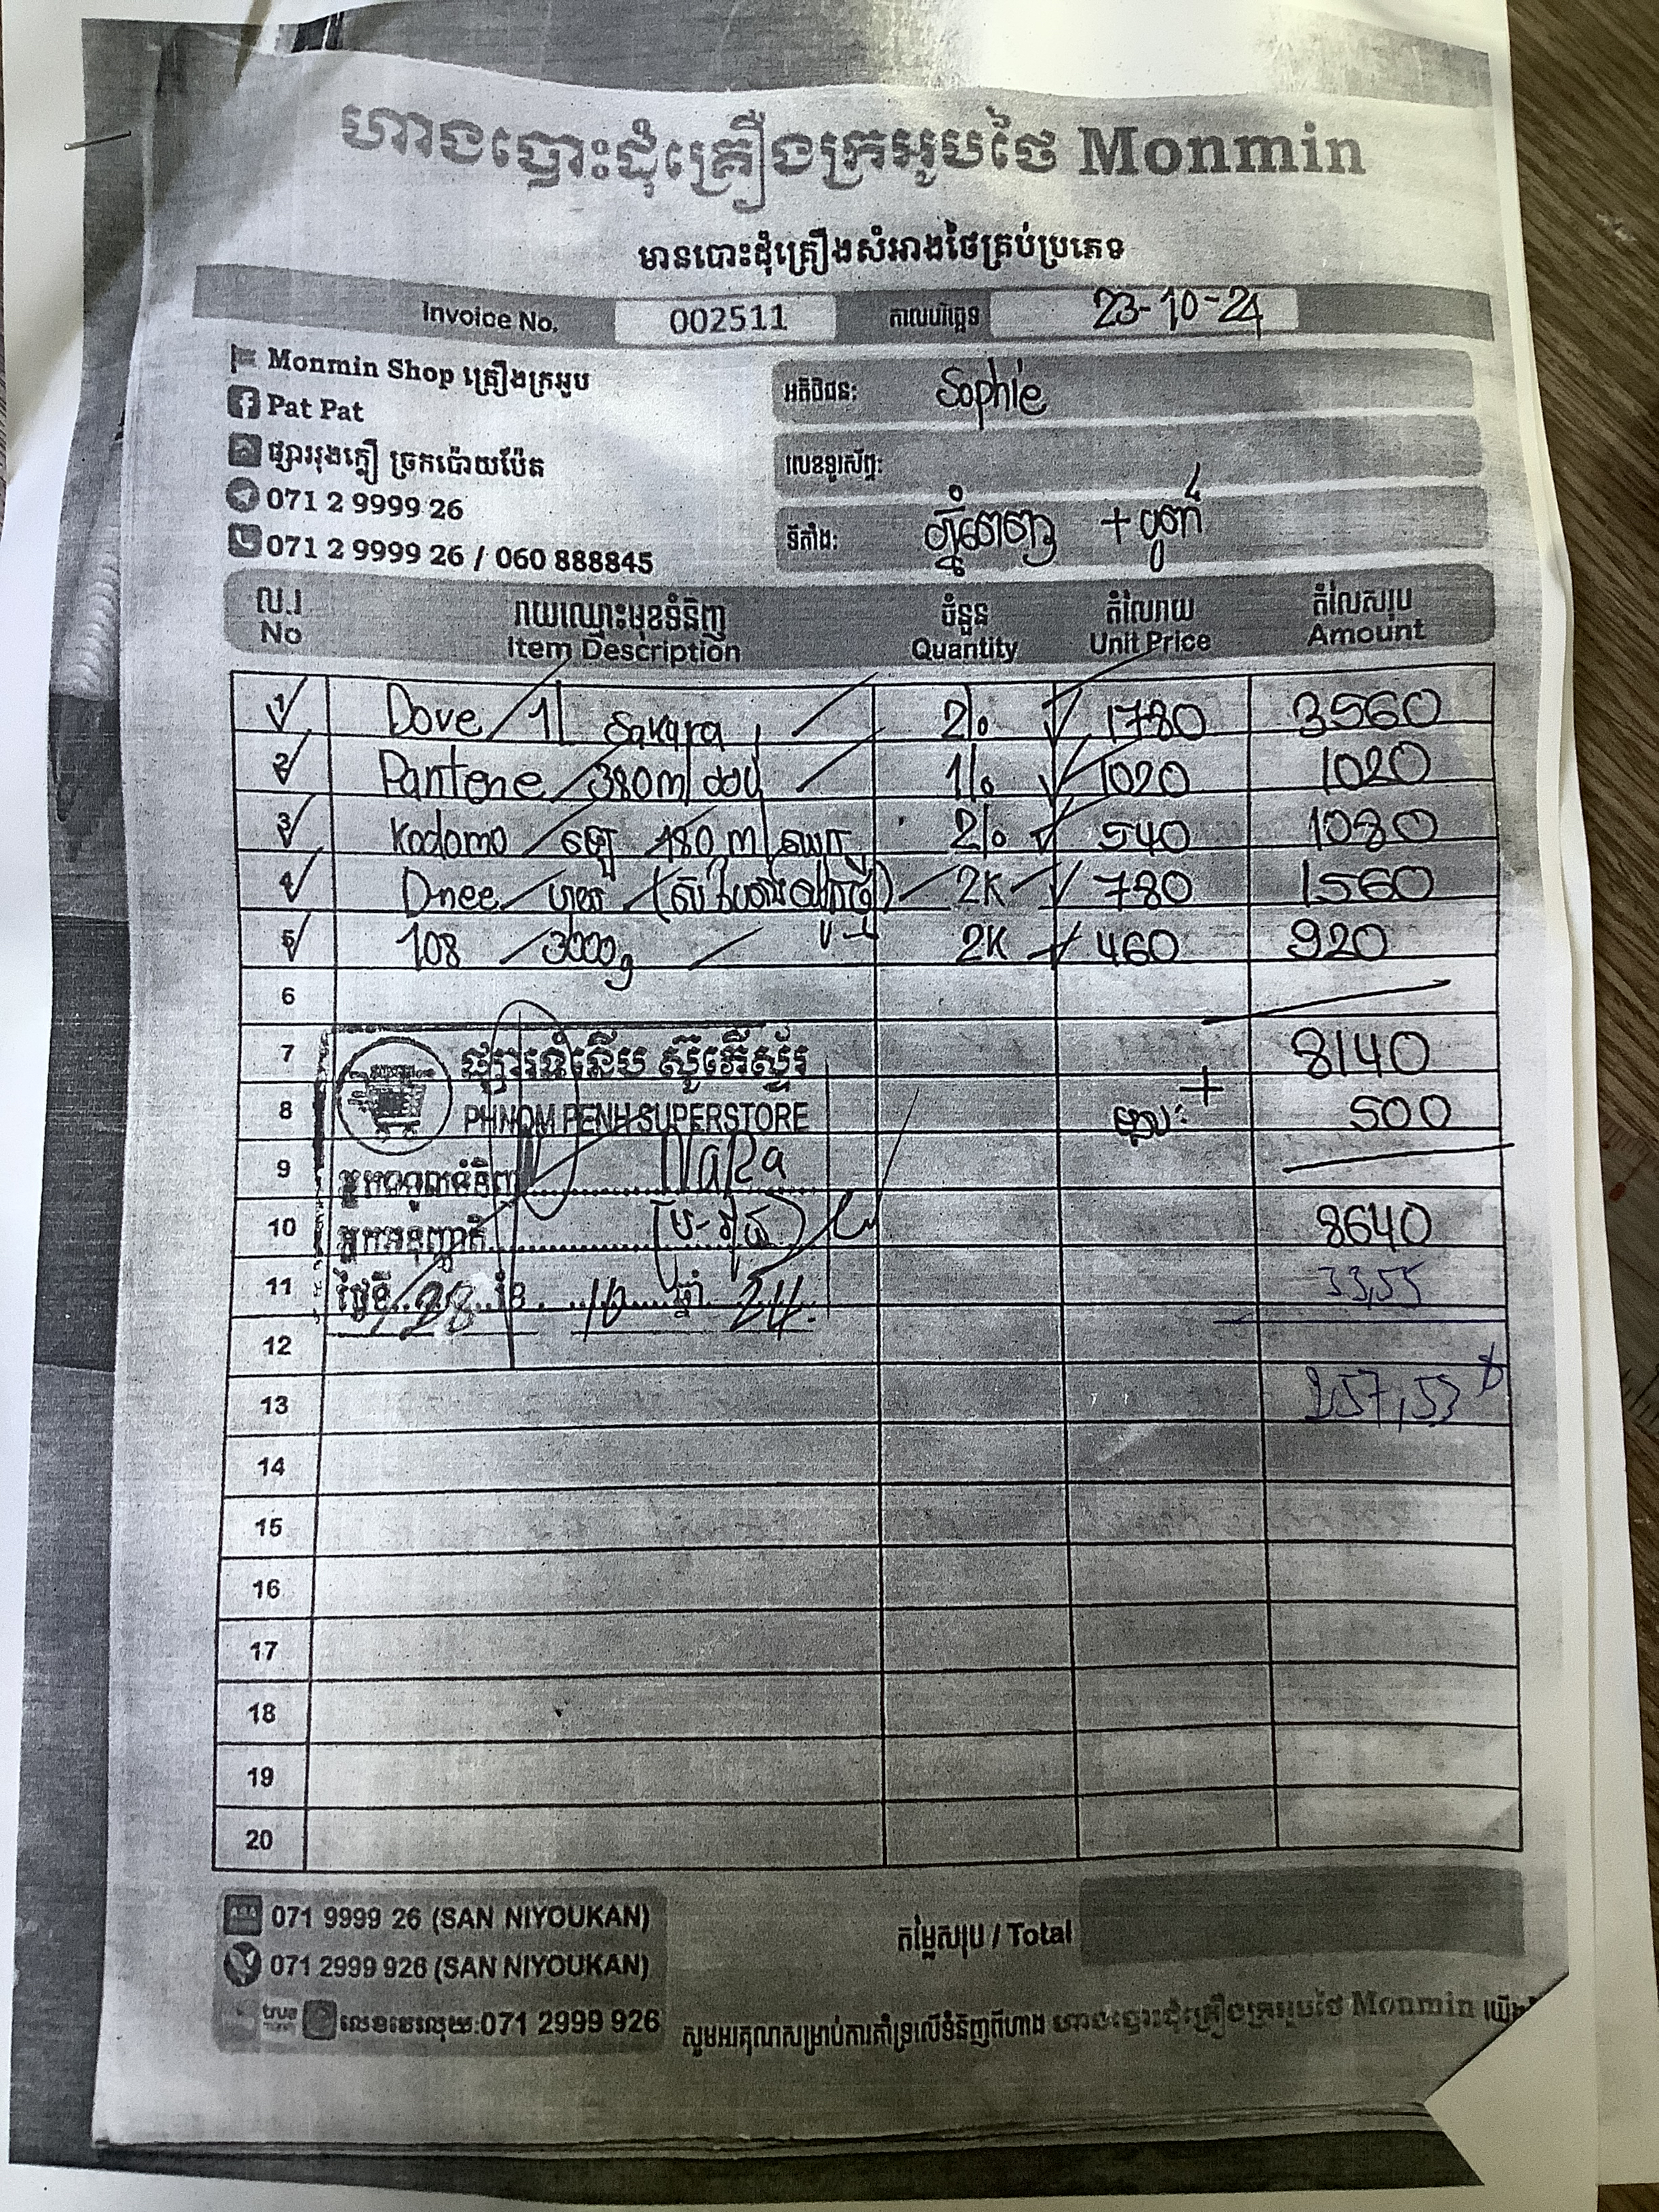 ហាងបោះដុំគ្រឿងក្រអូបថៃ Monmin
មានបោះដុំគ្រឿងសំអាងថៃគ្រប់ប្រភេទ
Invoice No. 002511 កាលបរិច្ឆេទ 23-10-24
Monmin Shop គ្រឿងក្រអូប
Pat Pat
ផ្សាររុងភ្លឺ ច្រកប៉ោយប៉ែត
071 2 9999 26
071 2 9999 26 / 060 888845
អតិថិជន: Sophie
លេខទូរស័ព្ទ:
ទីតាំង: ភ្នំពេញ
ល.រ រាយឈ្មោះមុខទំនិញ ចំនួន តំលៃរាយ តំលៃសរុប
No Item Description Quantity Unit Price Amount
1 Dove / 1l Sakura 2 1780 3560
2 Pantene / 380ml 1 1020 1020
3 Kodomo / 480ml 2 540 1080
4 Dnee 2K 780 1560
5 108 / 3000g 2K 460 920
6
7 8140
8 + 500
9
10 8640
11 33,55
12
13 257,53 $
14
15
16
17
18
19
20
ផ្សារទំនើប ស៊ូភើស្ទ័រ
PHNOM PENH SUPERSTORE
អ្នកទទួលទំនិញ NaRa
អ្នកអនុញ្ញាតិ
ថ្ងៃទី 28 ខែ 10 ឆ្នាំ 24
071 9999 26 (SAN NIYOUKAN)
071 2999 926 (SAN NIYOUKAN)
true លេខវេរលុយ:071 2999 926
តម្លៃសរុប / Total
សូមអរគុណសម្រាប់ការគាំទ្រលើទំនិញពីហាង ហាងបោះដុំគ្រឿងក្រអូបថៃ Monmin យើង